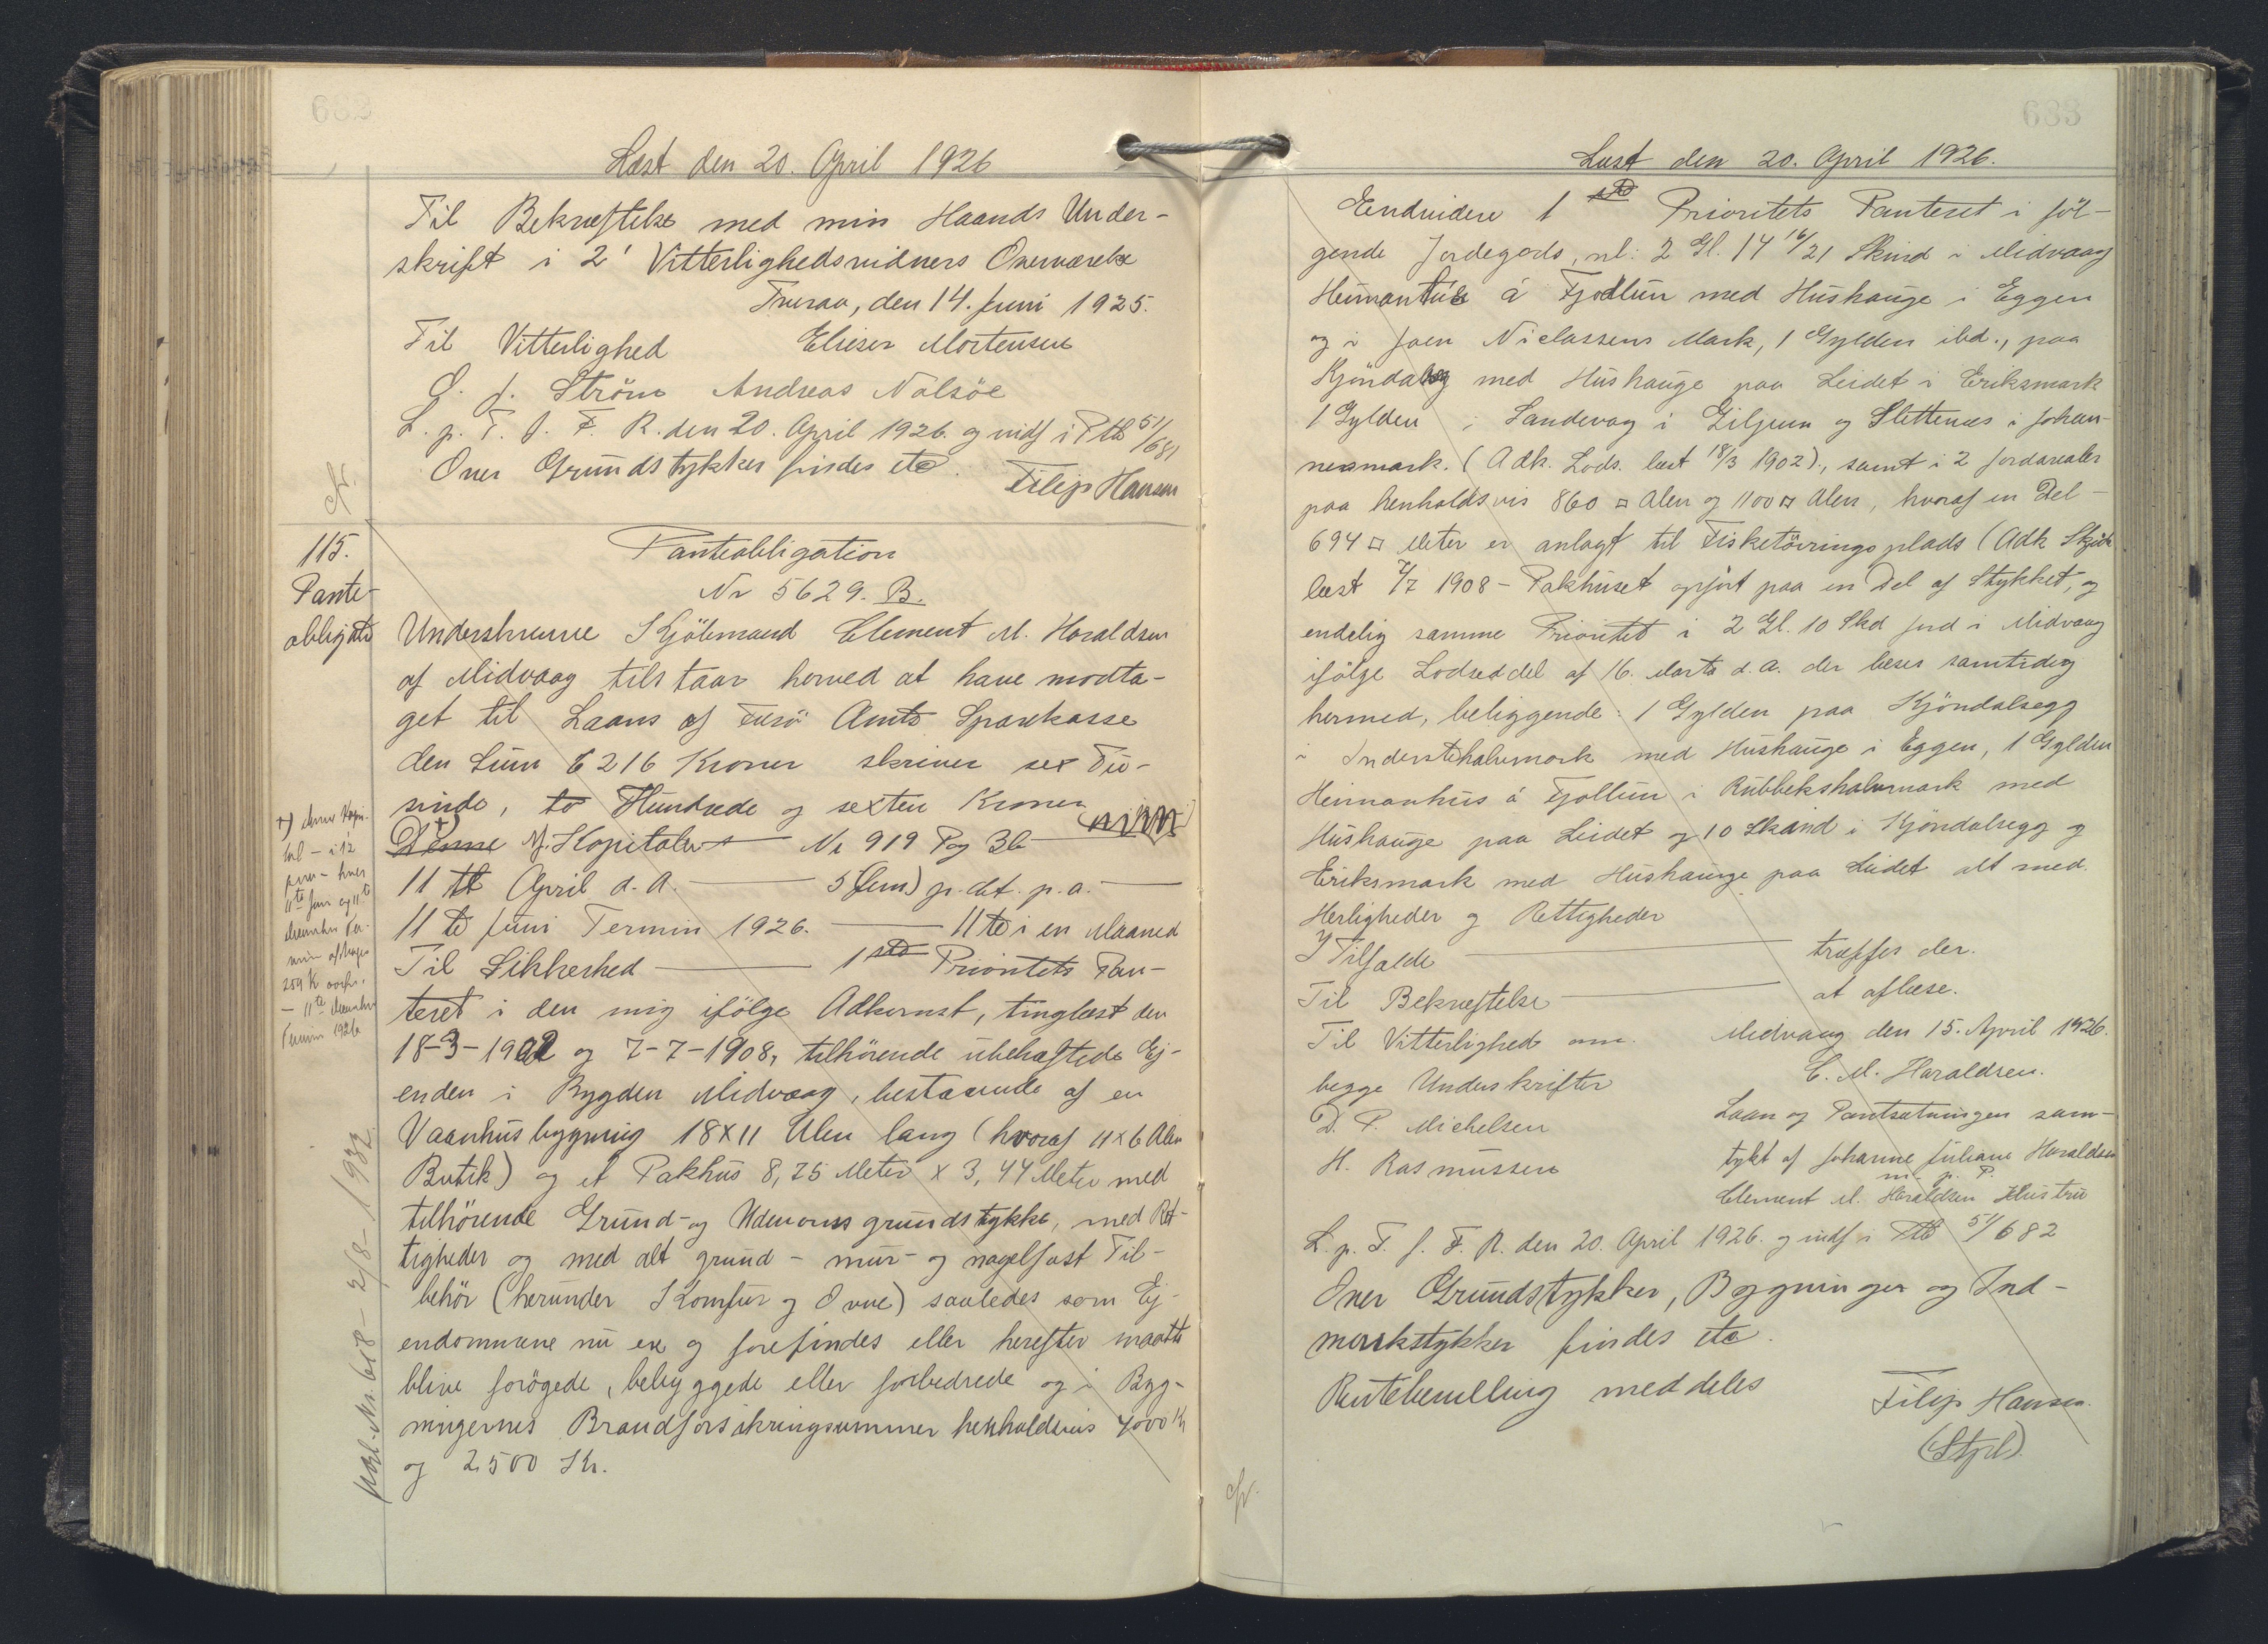 632
Læst den 20. April 1926
Til Bekræftelse med min Haands Under-
skrift i 2 Vitterlighedsvidners Overværelse
Tveraa, den 14. Juni 1925.
Til Vitterlighed Elieser Mortensen
J. Ström Andreas Nolsöe
L. p. T. f. F. R. den 20. April 1926. og indf i Ptb 51/681
Over Grundstykker findes etc. Filip Hansen
cfr.
115.
Pante-
obligatio
Panteobligation
Nr 5629. B.
Underskrevne Kjöbmand Clement M. Haraldsen
af Midvaag tilstaar herved at have modta-
get til Laans af Færö Amts Sparekasse
den Sum 6216 Kroner skriver sex Tu-
sinde, to Hundrede og sexten Kroner
Denne +) Kapitalen Nr 919 Pag 36
11te April d. A. 5 (fem) p. ct. p. a.
11te Juni Termin 1926. 11te i en Maaned
Til Sikkerhed 1ste Prioritets Pan-
teret i den mig ifölge Adkomst, tinglæst den
18-3-1902 og 7-7-1908, tilhörende ubehæftede Ej-
endom i Bygden Midvaag, bestaaende af en
Vaanhusbygning 18x11 Alen lang (hvoraf 11x6 Alen
Butik) og et Pakhus 8,75 Meter x 3,44 Meter med
tilhörende Grund- og Udenomsgrundstykke, med Ret-
tigheder og med alt grund- mur- og nagelfast Til-
behör (herunder Komfur og Ovne) saaledes som Ej-
endommene nu ere og forefindes eller herefter maatte
blive forögede, bebyggede eller forbedrede og i Byg-
ningernes Brandforsikringssummer henholdsvis 4000 Kr
og 2500 Kr.
+) denne Kapi-
tal - i 12
hver
11te Juni og 11te
December Ter-
min afdrages
259 K
- 11te December
Termin 1926
Nr. 658 - 2/8 - 1932.
633
Læst den 20. April 1926.
Endvidere 1ste Prioritets Panteret i föl-
gende Jordegods, nl: 2 Gl. 14 16/21 Skind i Midvaag
Heimanhús á Fjøllun med Hushauge i Eggen
og i Joen Niclassens Mark, 1 Gylden ibd., paa
Kjöndalsegg med Hushauge paa Leidet i Eriksmark
1 Gylden i Sandevag i Giljum og Slettenes i Johan-
nesmark. (Adk. Lods. læst 18/3 1902)., samt i 2 Jordarealer
paa henholdsvis 860 □ Alen og 1100 □ Alen, hvoraf en Del -
694 □ Meter er anlagt til Fisketörringsplads (Adk Skjöde
læst 7/7 1908 - Pakhuset opfört paa en Del af Stykket, og
endelig samme Prioritet i 2 Gl. 10 Skd Jord i Midvaag
ifölge Lodseddel af 16. Marts d. A. der læses samtidig
hermed, beliggende: 1 Gylden paa Kjöndalsegg
i Inderstehalvmark med Hushauge i Eggen, 1 Gylden
Heimanhus á Fjøllun i Rubbekshalvmark med
Hushauge paa Leidet og 10 Skind i Kjöndalsegg og
Eriksmark med Hushauge paa Leidet alt med
Herligheder og Rettigheder
I Tilfælde træffes der.
Til Bekræftelse at aflæse.
Til Vitterlighed om Midvaag den 15. April 1926.
begge Underskrifter C. M. Haraldsen.
D. P. Michelsen Laan og Pantsætningen sam-
H. Rasmussen tykt af Johanne Juliane Haraldsen
m. p. P.
Clement M. Haraldsen Hustru
L. p. T. f. F. R. den 20. April 1926. og indf i Ptb 51/682
Over Grundstykker, Bygninger og Ind-
markstykker findes etc.
Rentebevilling meddeles
Filip Hansen.
(Stpl).
cfr.